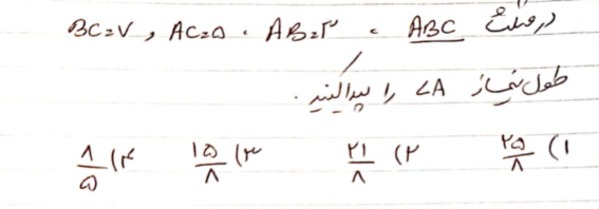 در مثلث ABC ، AB=۳ ، AC=۵ و BC=۷
طول نیمساز ∠A را پیدا کنید .
۱) ۲۵/۸ ۲) ۲۱/۸ ۳) ۱۵/۸ ۴) ۸/۵